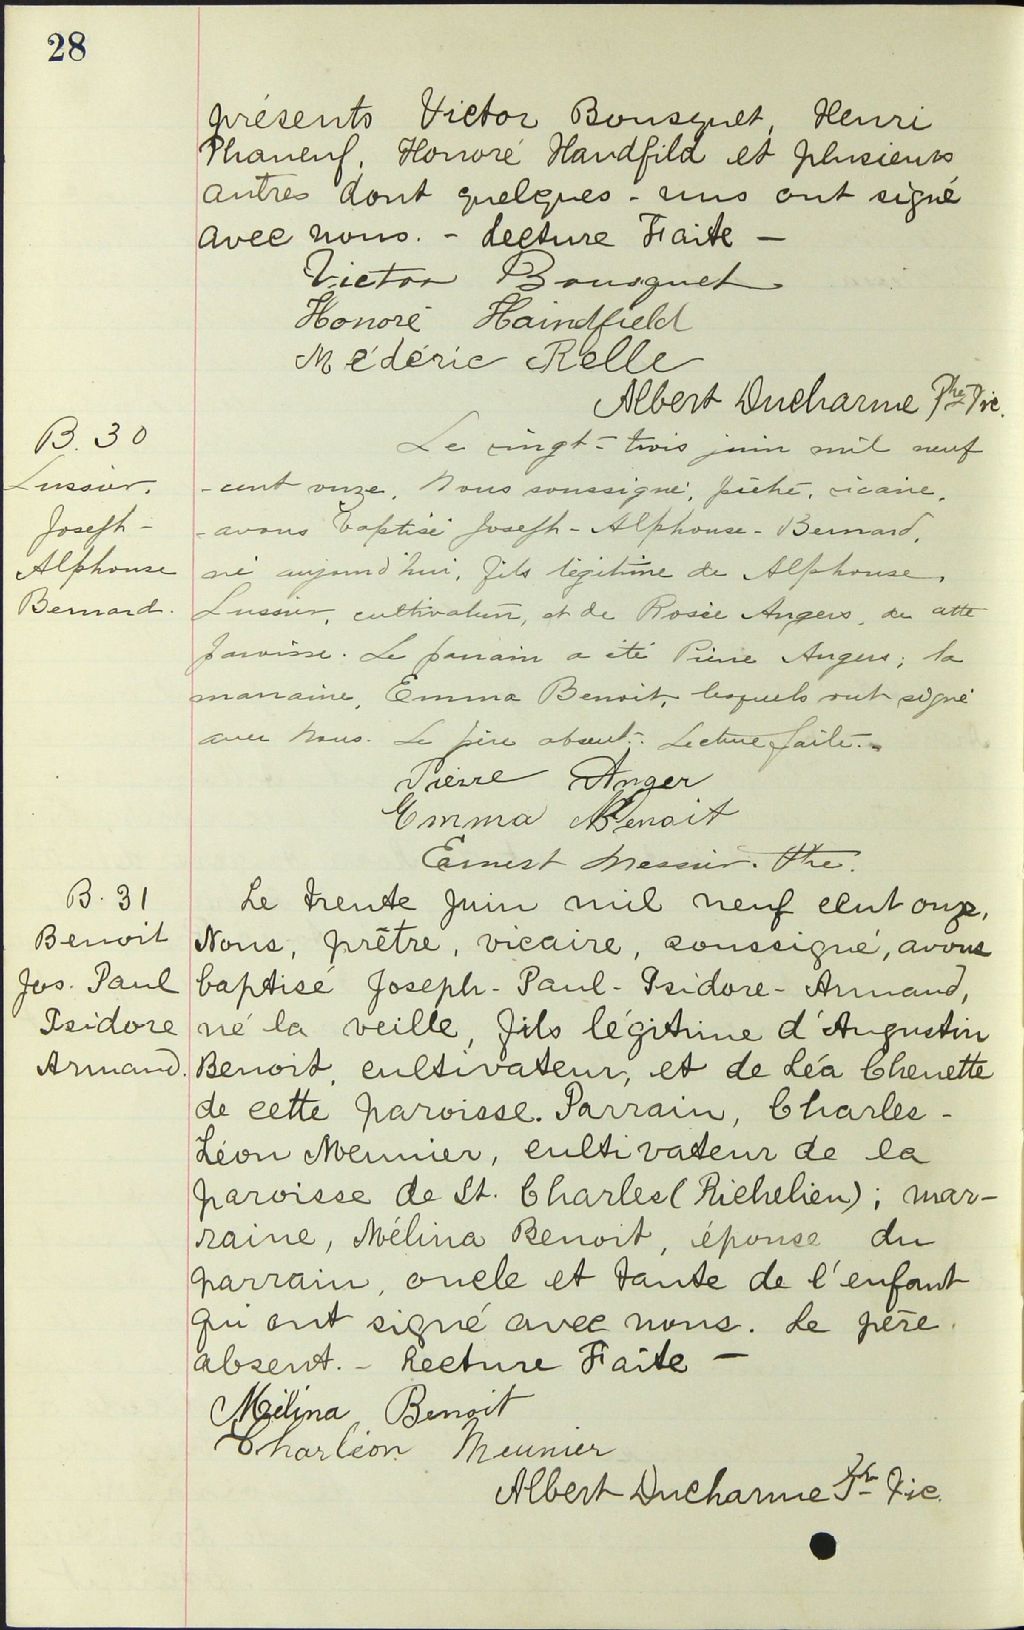 28
présents Victor Bousquet, Henri
Phaneuf, Honoré Handfild et plusieurs
autres dont quelques-uns ont signé
avec nous. - Lecture Faite -
Victor Bousquet
Honoré Haindfield
Médéric Relle
Albert Ducharme Ptre Vic.
B. 30
Lussier,
Joseph-
Alphonse
Bernard.
Le vingt-trois juin mil neuf
-cent onze, Nous soussigné, prêtre, vicaire,
-avons baptisé Joseph-Alphonse-Bernard,
né aujourd'hui, fils légitime de Alphonse
Lussier, cultivateur, et de Rosée Angers, de cette
paroisse. Le parrain a été Pierre Angers; la
marraine, Emma Benoit, lesquels ont signé
avec nous. Le père absent. Lecture faite.
Pierre Anger
Emma Benoit
Ernest Messier. Ptre.
B. 31
Benoit
Jos. Paul
Isidore
Armand.
Le trente Juin mil neuf cent onze,
Nous, prêtre, vicaire, soussigné, avons
baptisé Joseph-Paul-Isidore-Armand,
né la veille, fils légitime d'Augustin
Benoit, cultivateur, et de Léa Chenette
de cette paroisse. Parrain, Charles-
Léon Meunier, cultivateur de la
paroisse de St. Charles (Richelieu); mar-
raine, Mélina Benoit, épouse du
parrain, oncle et tante de l'enfant
qui ont signé avec nous. Le père
absent. - Lecture Faite -
Mélina Benoit
Charléon Meunier
Albert Ducharme Ptr Vic.